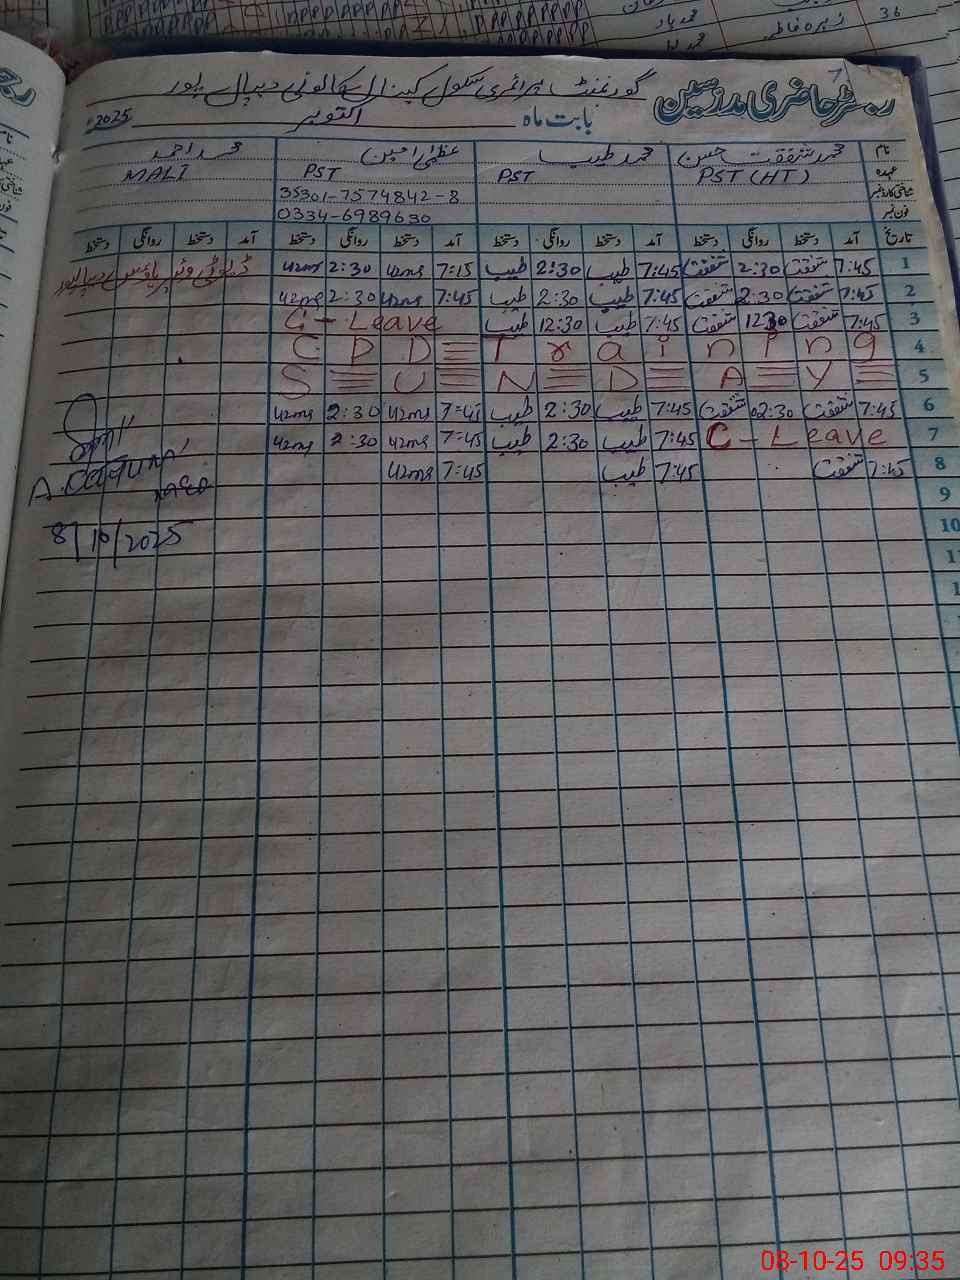 36
زہرہ فاطمہ
رجسٹر حاضری مدرسین
گورنمنٹ پرائمری سکول کینال کالونی دیپال پور
بابت ماہ اکتوبر 2025ء
نام محمد شفقت حسین محمد طیب عظمیٰ امین محمد احمد
عہدہ PST (HT) PST PST MALI
شناختی کارڈ نمبر 35301-7574842-8
فون نمبر 0334-6989630
تاریخ آمد دستخط روانگی دستخط آمد دستخط روانگی دستخط آمد دستخط روانگی دستخط آمد دستخط روانگی دستخط
1 7:45 شفقت 2:30 شفقت 7:45 طیب 2:30 طیب 7:15 uzma 2:30 uzma
2 7:45 شفقت 2:30 شفقت 7:45 طیب 2:30 طیب 7:45 uzma 2:30 uzma
3 7:45 شفقت 12:30 شفقت 7:45 طیب 12:30 طیب C - Leave
4 C P D Training
5 S U N D A Y
6 7:45 شفقت 02:30 شفقت 7:45 طیب 2:30 طیب 7:45 uzma 2:30 uzma
7 C - Leave 7:45 طیب 2:30 طیب 7:45 uzma 2:30 uzma
8 7:45 شفقت 7:45 طیب 7:45 uzma
9
10
11
8/10/2025
08-10-25 09:35